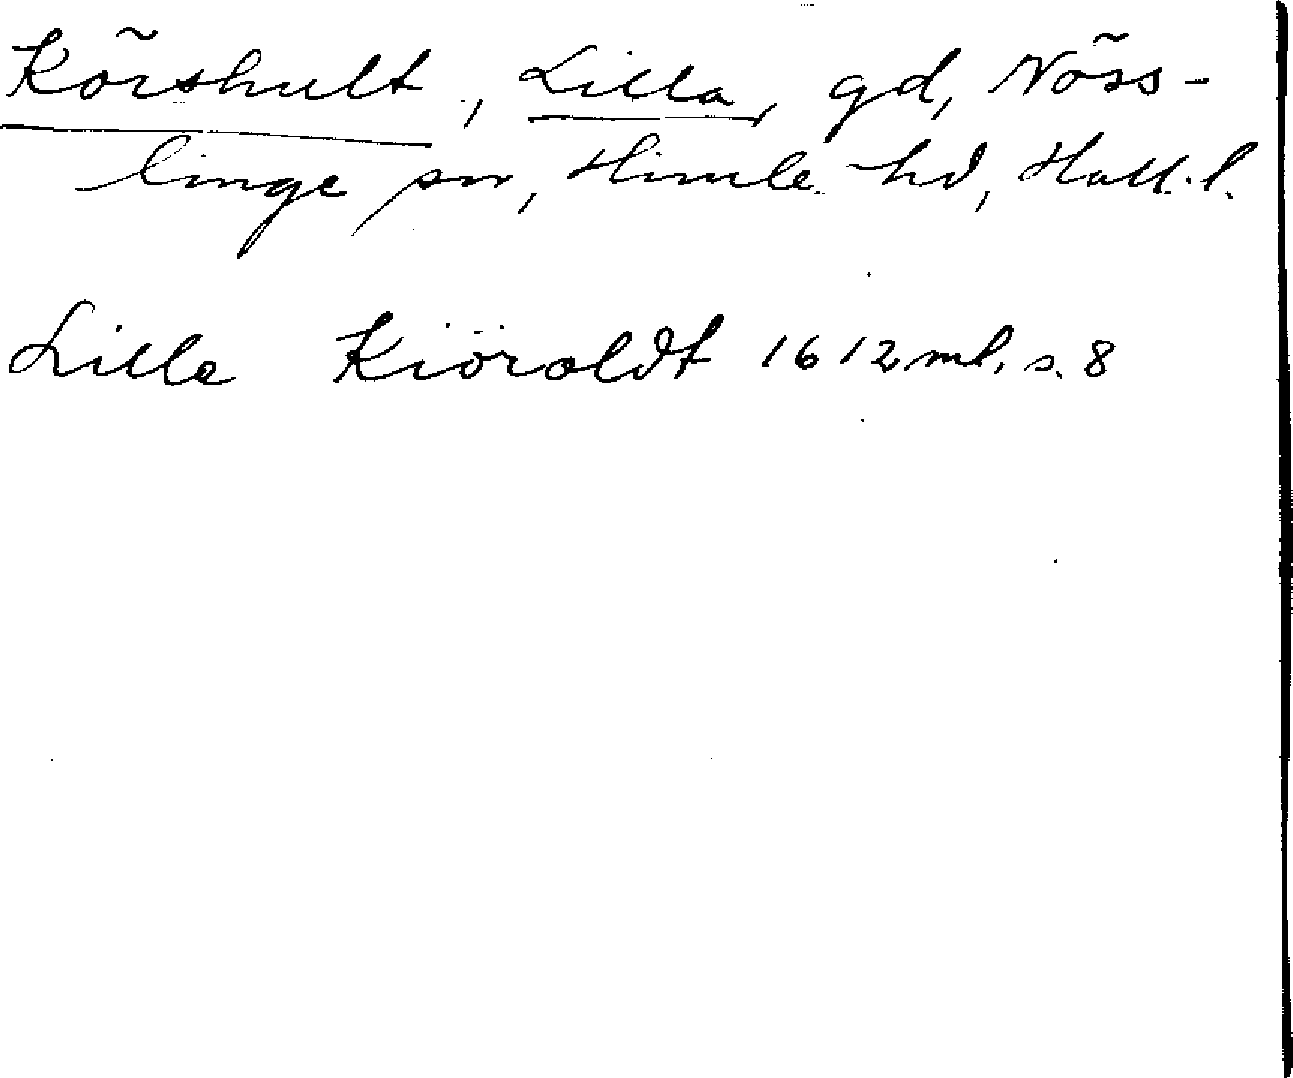 Körshult, Lilla, gd, Nöss-
linge sn, Himle hd, Hall. l.
Lille Kiöroldt 1612 ml. s. 8